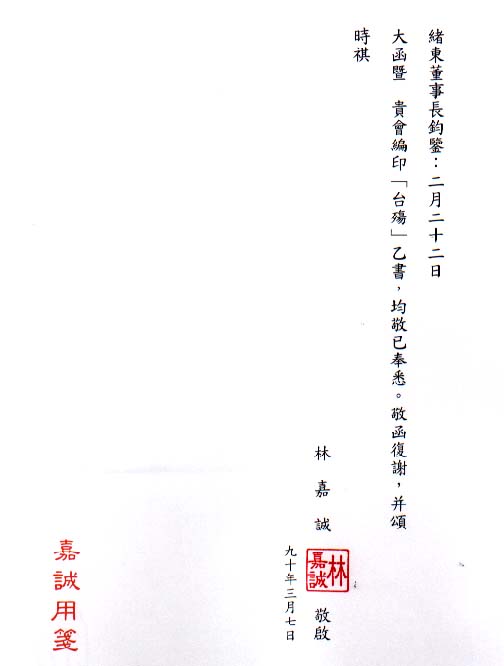 緒東董事長鈞鑒：二月二十二日
大函暨　貴會編印「台殤」乙書，均敬已奉悉。敬函復謝，并頌
時祺
林嘉誠
林嘉誠
敬啟
九十年三月七日
嘉誠用箋